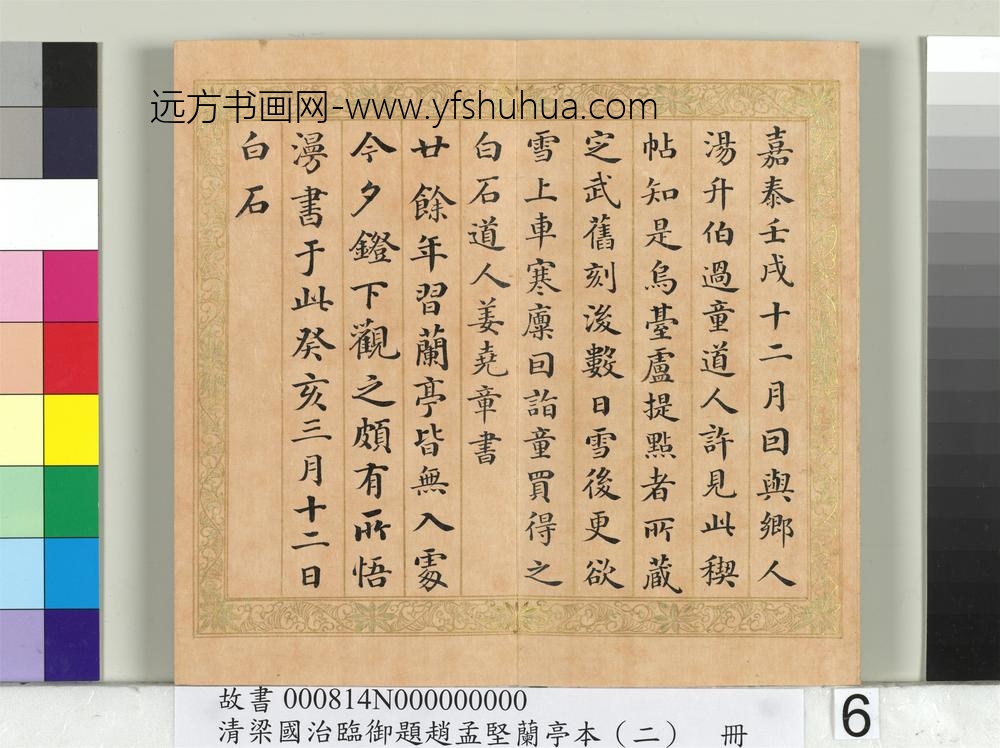 远方书画网-www.yfshuhua.com
嘉泰壬戌十二月因與鄉人
湯升伯過童道人許見此稧
帖知是烏臺盧提點者所蔵
定武舊刻後數日雪後更欲
雪上車寒廩囙詣童買得之
白石道人姜堯章書
廿餘年習蘭亭皆無入處
今夕鐙下觀之頗有所悟
漫書于此癸亥三月十二日
白石
故書 000814N000000000
清梁國治臨御題趙孟堅蘭亭本（二） 冊
6